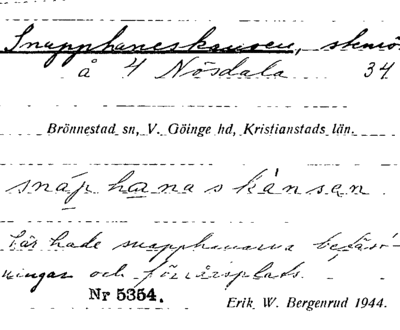 Snapphaneskansen, skans
å 4 Nösdala 34
Brönnestad sn, V. Göinge hd, Kristianstads län.
snáp hana s kánsen
Här hade snapphanarna befäst-
ningar och förrådsplats.
Nr 5354.
Erik W. Bergenrud 1944.